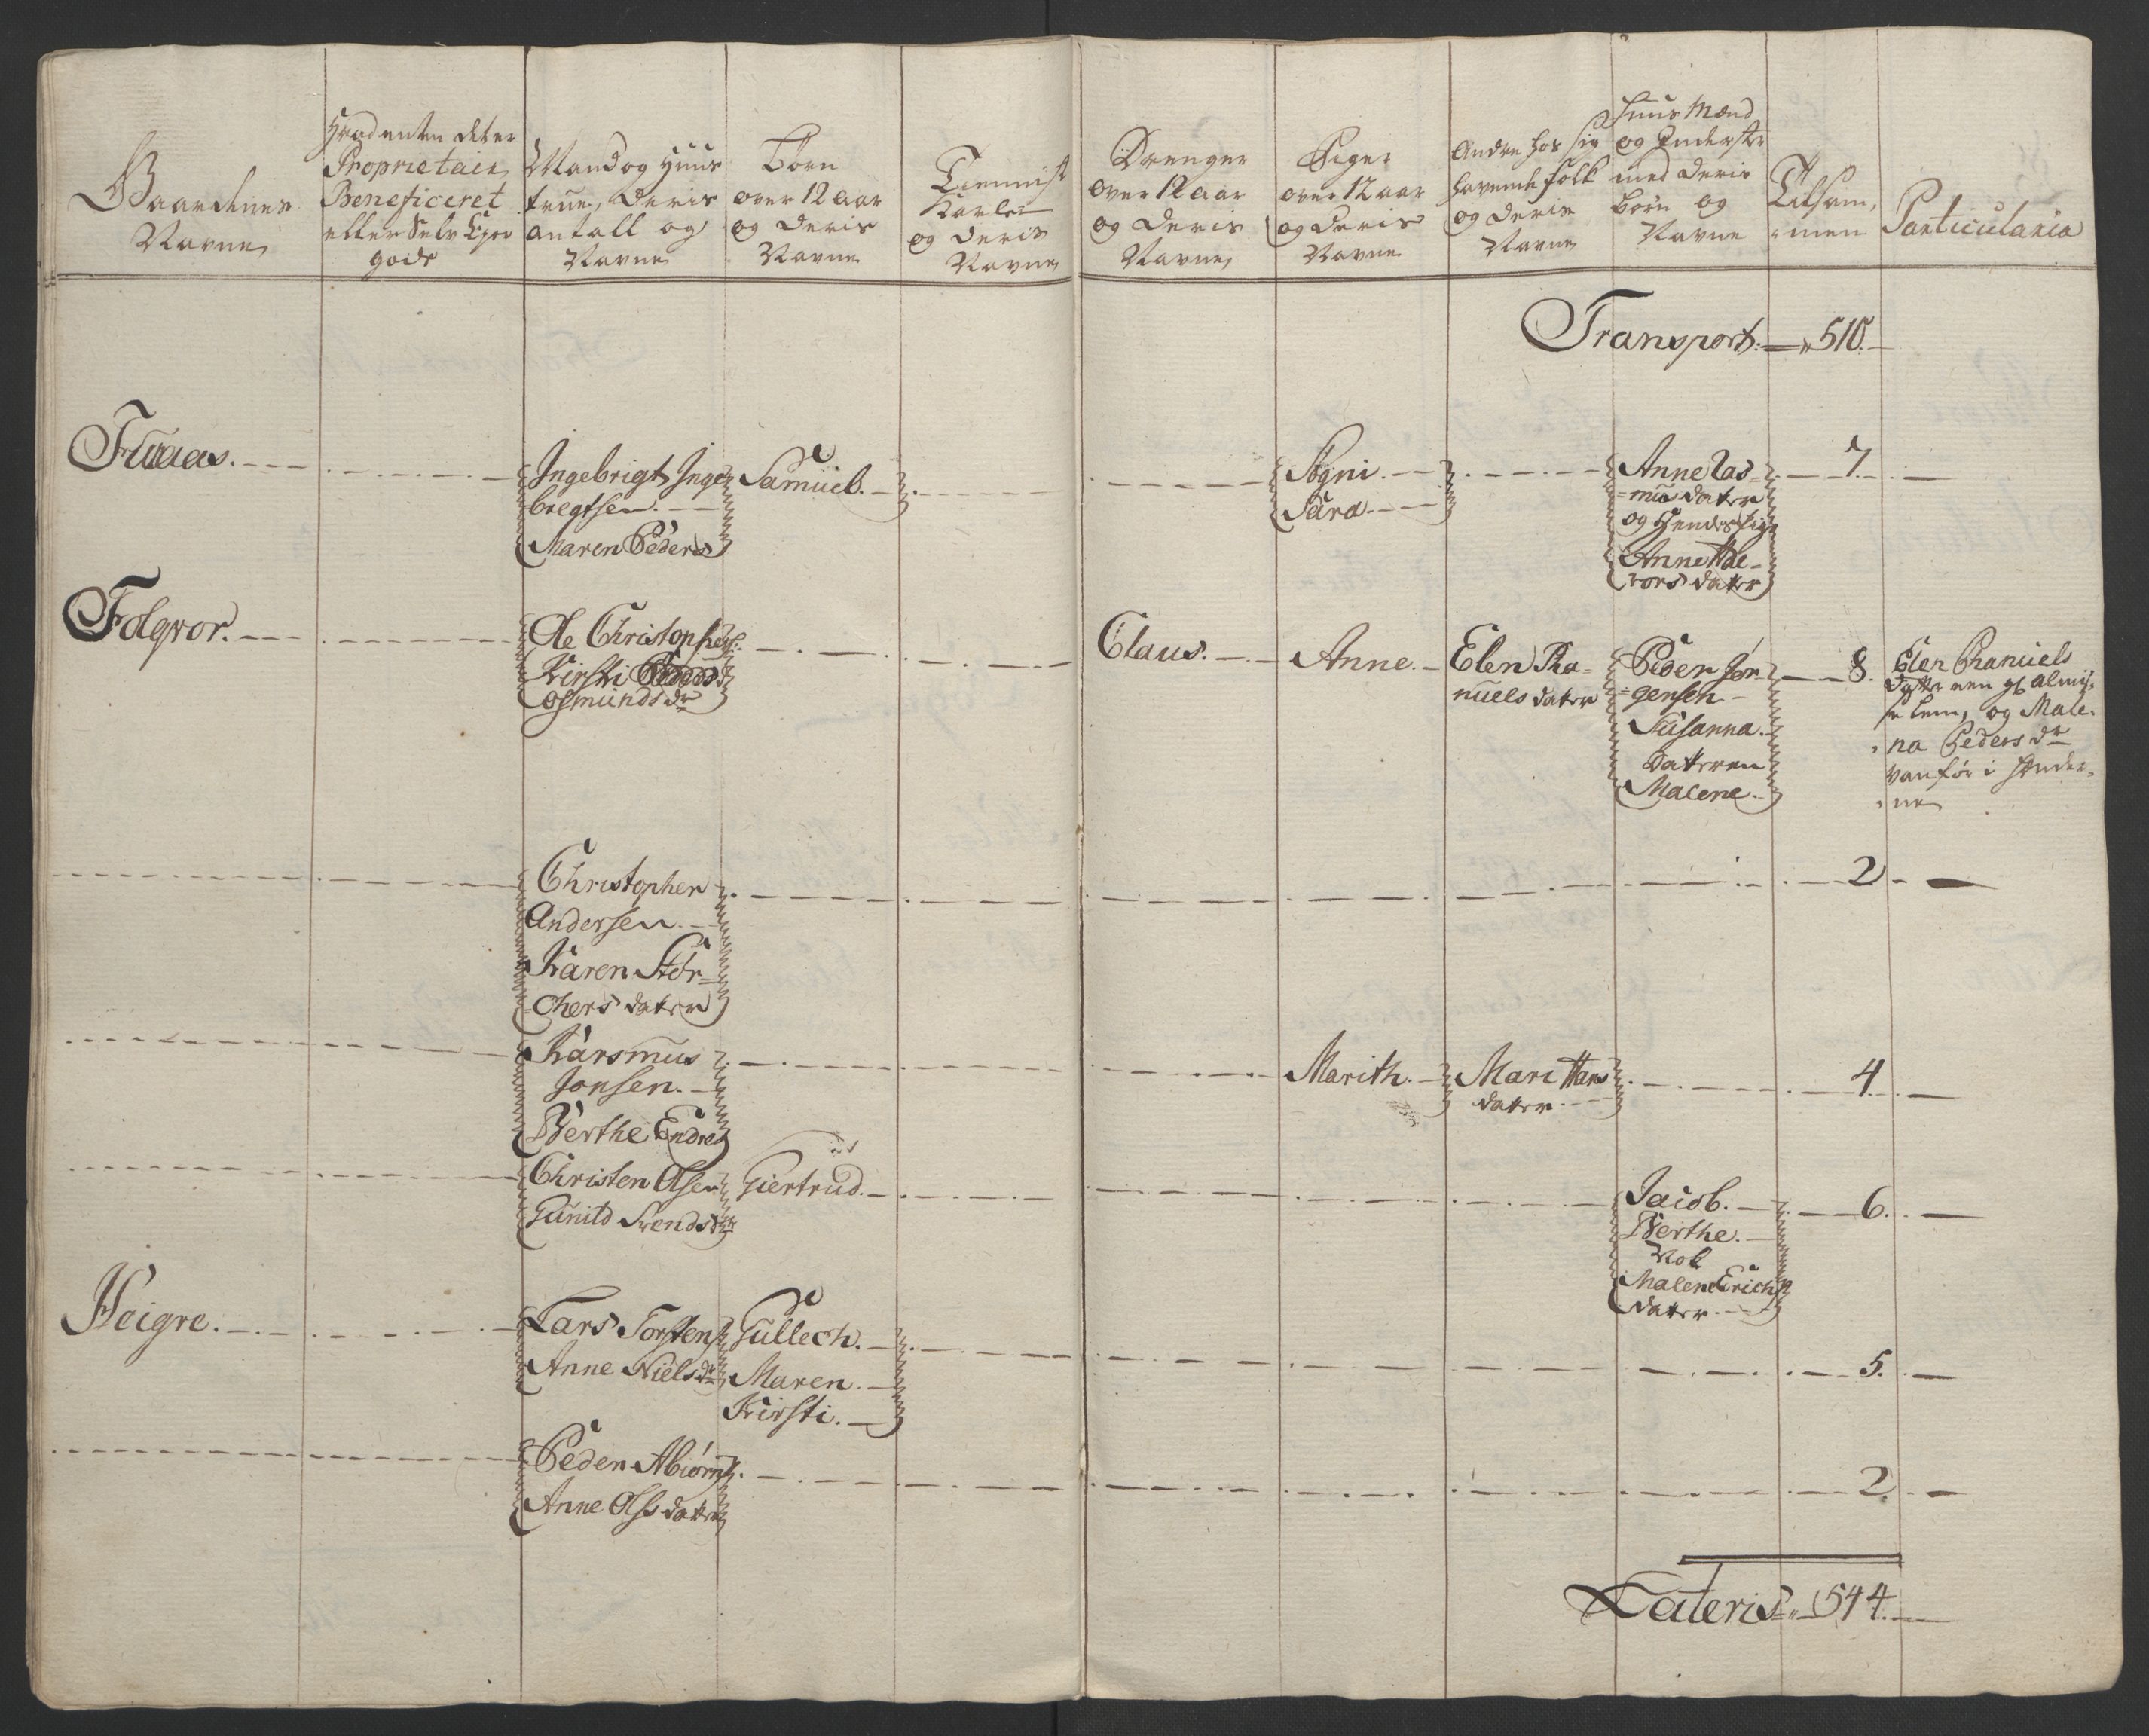 Gaardenes
Navne
Hvad enten det er
Proprietair
Beneficeret
eller Selv Eyer
gods
Mand og Huus
true, deris
antall og
Navne
Børn
over 12 aar
og deris
Navne
Tienniste
Karle
og deris
Navne
Drenger
over 12 aar
og deris
Navne
Piger
over 12 aar
og deris
Navne
Andre hos sig
havende folk
og deris
Navne
Huus Mænd
og Inderster
med deris
børn og
Navne
Tilsam,
men
Particularia
Transport 510.
Fuaas.
Ingebrigt Inge
bregtsen.
Maren Peders
Samuel.
Sygni.
Sara.
Anne Ras=
=mus dater
og Hendes pige
Anne Hal=
vors dater
7.
Folqvor.
Ole Christophers:
Kirsti
Osmunds dr
Claus.
Anne.
Elen Pha=
nuels dater
Peder Jør
=gensen
Susanna.
datteren
Malene.
8.
Elen Phanuels
datter en gl almis=
se lem, og Male=
na Peders dr
vanfør i Hender=
ne
Christopher
Andersen.
Karen Stör=
chers dater
2
Rasmus
Jonsen.
Berthe Endres
Marith.
Mari Hans
dater
4.
Christen Olsen
Gunild Svends dr
Giertrud.
Jacob.
Berthe.
Nok
Malene Erichs
dater.
6.
Heigre.
Lars Torstens
Anne Niels dr
Gullech.
Maren.
Kirsti.
5.
Peder Abiørns
Anne Ols dater
2.
Lateris 544.